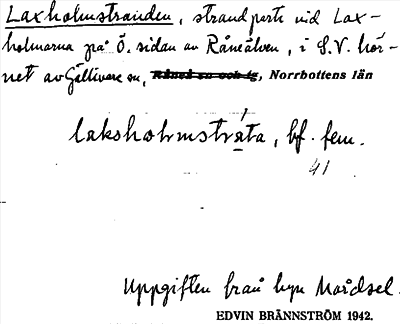 Laxholmstranden, strandparti vid Lax-
holmarna på Ö. sidan av Råneälven, i S.V. hör-
net av Gällivare sn, Råneå sn och tg, Norrbottens län
laksholmstráta, bf. fem.
41
Uppgiften från byn Mårdsel.
EDVIN BRÄNNSTRÖM 1942.